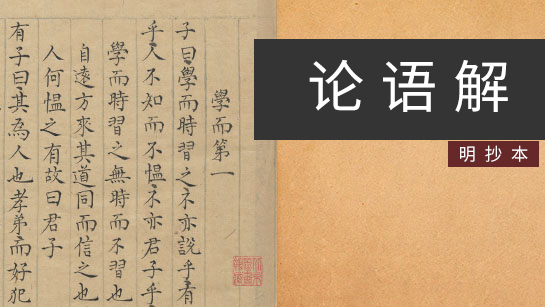 论语解
明抄本
學而第一
子曰學而時習之不亦說乎有
乎人不知而不慍不亦君子乎
學而時習之無時而不習也
自遠方來其道同而信之也
人何慍之有故曰君子
有子曰其為人也孝弟而好犯